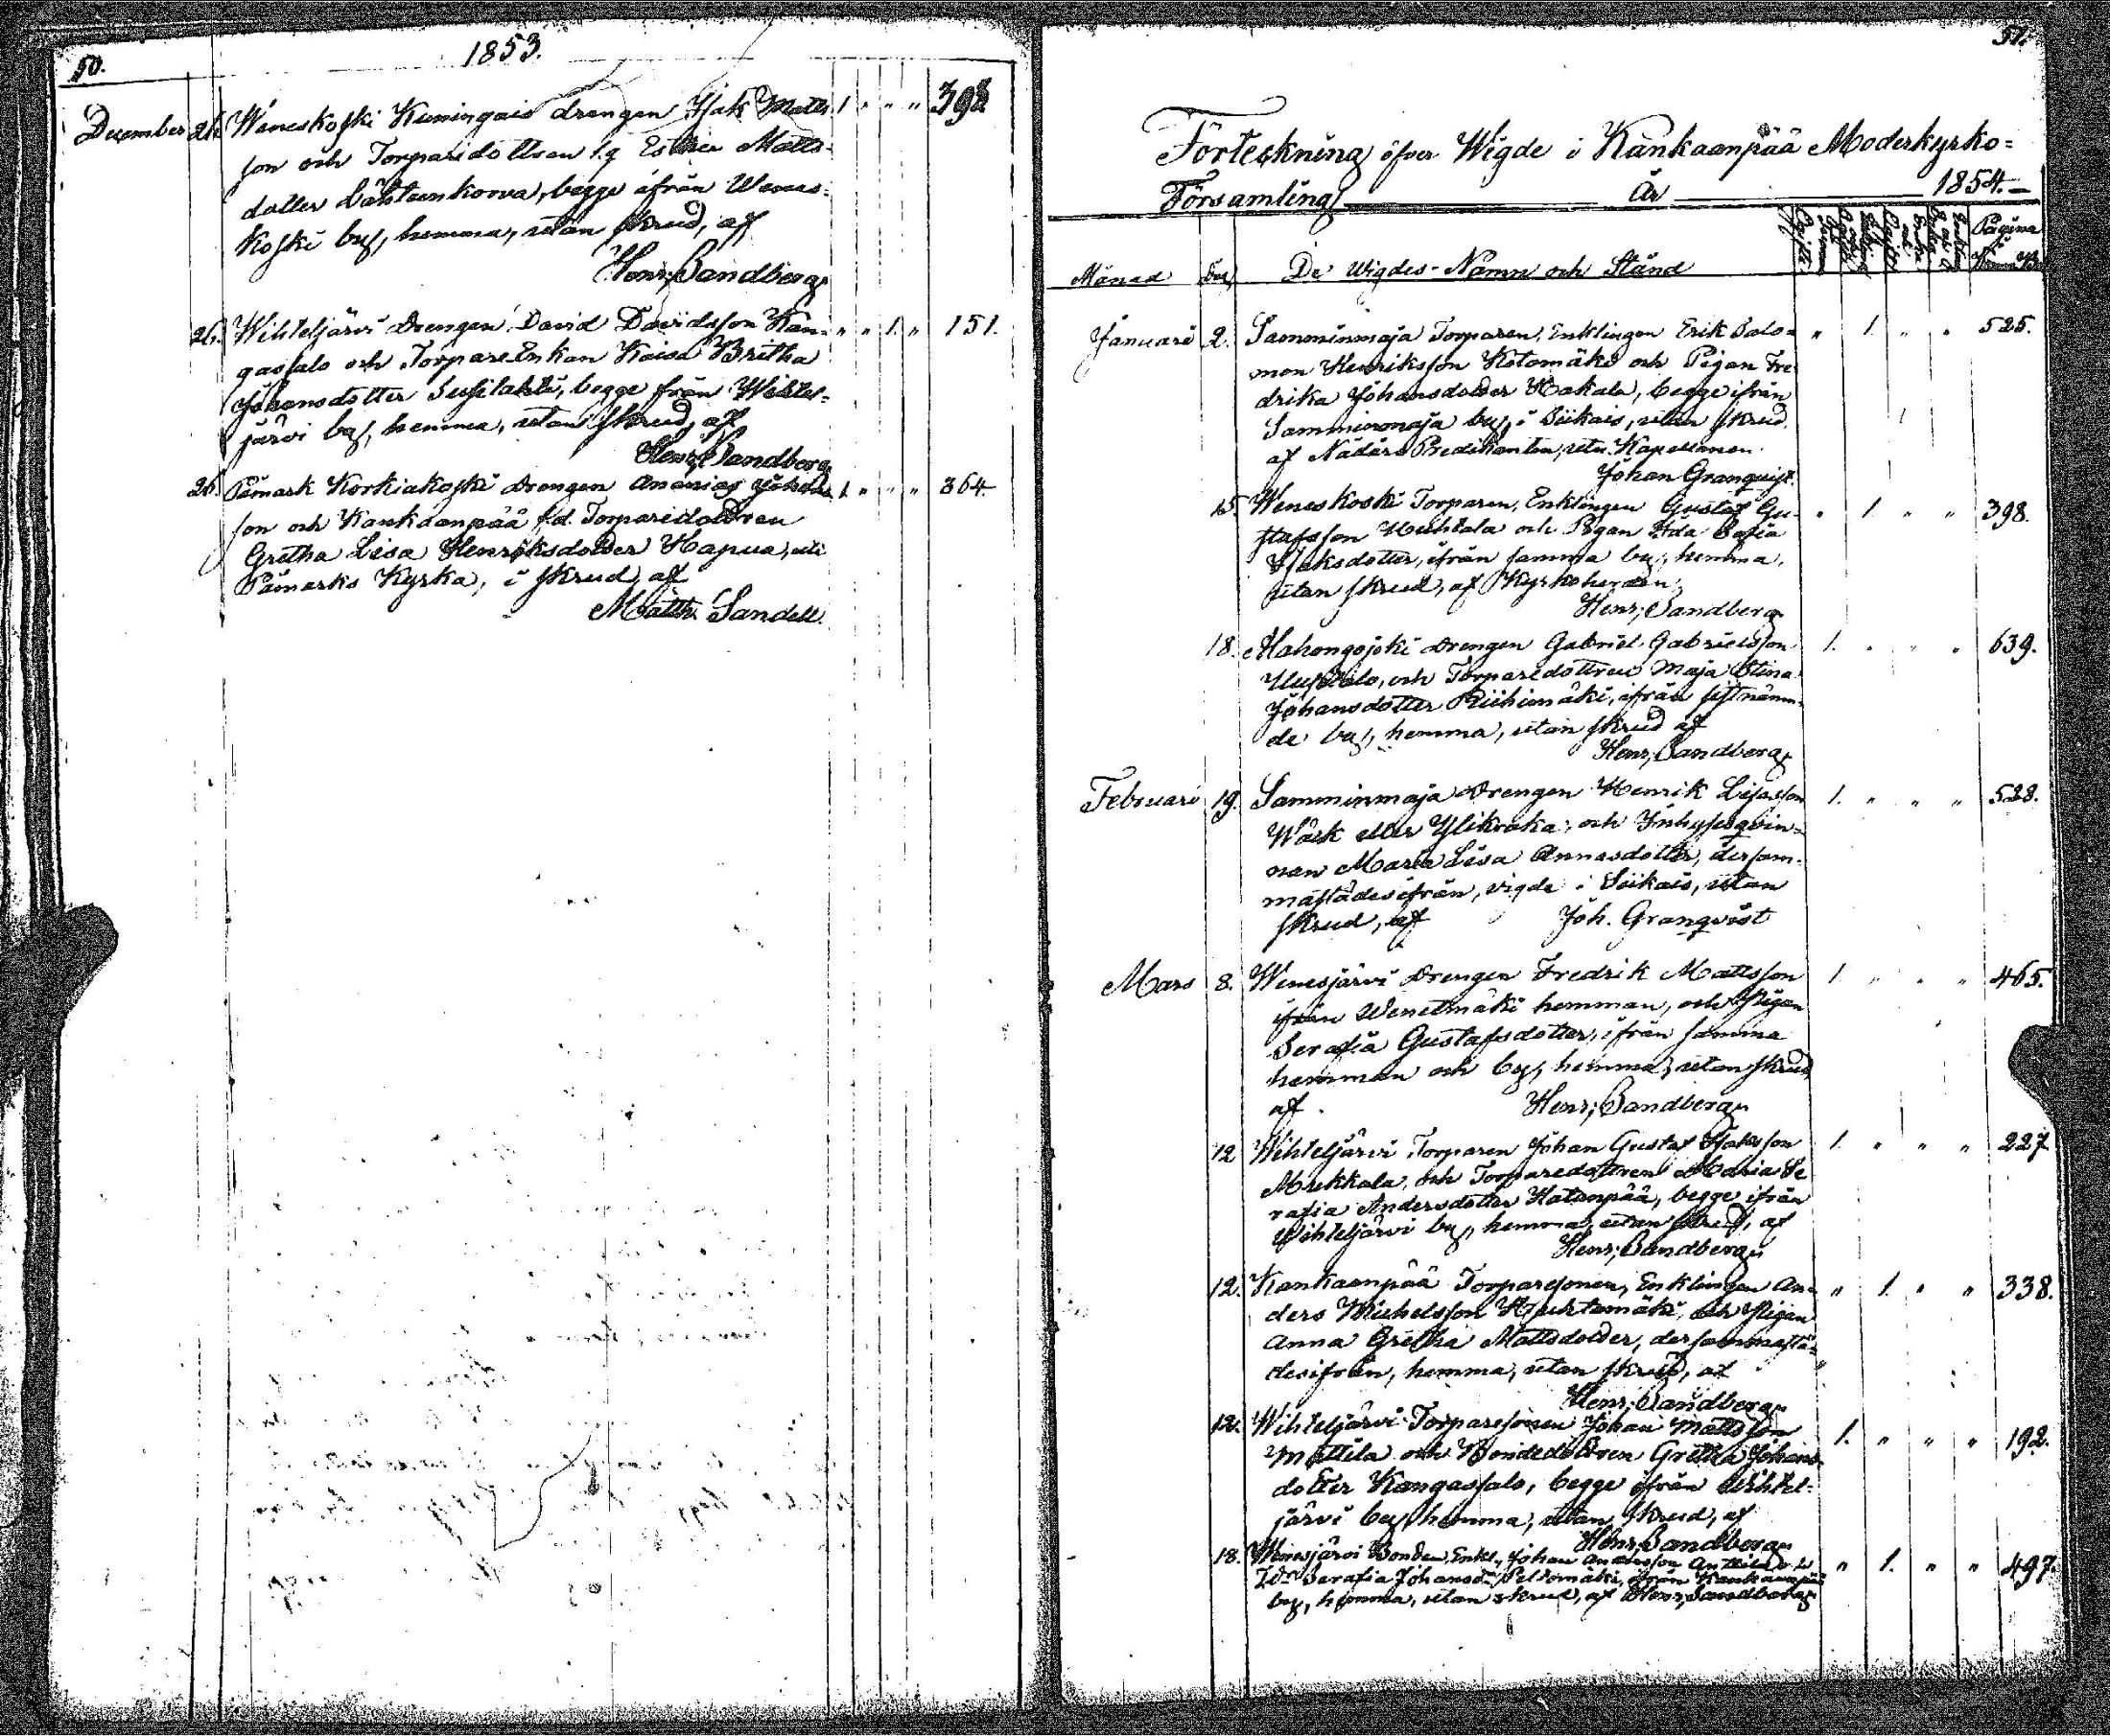 50.
1853.
December 26. Weneskoski Kuningais drengen Isak Matts- 1 " " " 398
son och Torparedottren Esther Matts-
dotter Lähteenkorva, begge ifrån Wenes-
koski by, hemma, utan skrud, af
Henr; Sandberg
26. Wihteljärvi Drengen David Davidsson Kan- " " 1. " 151.
gassalo och Torpare Enkan Kaisa Britha
Johansdotter Susilahti, begge från Wihtel-
järvi by, hemma, utan skrud, af
Henr; Sandberg
26. Påmark Korkiakoski Drengen Ananias Johans- 1. " " " 364.
son och Kankaanpää f.d. Torparedottren
Gretha Lisa Henriksdotter Hapua, uti
Påmarks Kyrka, i skrud, af
Matth. Sandell.
51.
Förteckning öfver Wigde i Kankaanpää Moderkyrko-
Församling År 1854.
Månad Dag De Wigdes Namn och Stånd Pagina
Januari 2. Samminmaja Torparen, Enklingen Erik Salo- " 1. " " 525.
mon Henriksson Kotomäki och Pigan Fre-
drika Johansdotter Hakala, begge ifrån
Samminmaja by, i Siikais, utan skrud
af Nådårs Predikanten, Kapellanen
Johan Granqvist.
15. Weneskoski Torparen, Enklingen Gustaf Gu- " 1. " " 398.
stafsson Huhtala och Pigan Ida Sofia
Isaksdotter, ifrån samma by, hemma,
utan skrud, af Kyrkoherden
Henr; Sandberg
18. Alahongojoki Drengen Gabriel Gabrielsson 1. " " " 639.
och Torparedottren Maja Stina
Johansdotter Riihimäki, ifrån sistnämn-
de by, hemma, utan skrud af
Henr; Sandberg
Februari 19. Samminmaja Drengen Henrik 1. " " " 528.
eller Ylikraka, och Inhysesqvin-
nan Maria Lisa Annasdotter, dersam-
mastädesifrån, vigde i Siikais, utan
skrud, af Joh. Granqvist
Mars 8. Wenesjärvi Drengen Fredrik Mattsson 1. " " " 465.
ifrån Wenetmäki hemman, och Pigan
Serafia Gustafsdotter, ifrån samma
hemman och by, hemma, utan skrud
af Henr; Sandberg
12 Wihteljärvi Torparen Johan Gustaf Isaksson 1. " " " 227
Mukkala, och Torparedottren Maria Se
rafia Andersdotter Hatanpää, begge ifrån
Wihteljärvi by, hemma, utan skrud, af
Henr; Sandberg
12. Kankaanpää Torparesonen, Enklingen An- " 1. " " 338.
ders Michelsson Huhtamäki, och Pigan
Anna Gretha Mattsdotter, dersammastä-
desifrån, hemma, utan skrud, af
Henr; Sandberg
12. Wihteljärvi Torparesonen Johan Mattsson 1. " " " 192.
Mattila och Bondedottren Gretha Johans-
dotter Kangassalo, begge ifrån Wihtel-
järvi by, hemma, utan skrud, af
Henr; Sandberg
18. Wenesjärvi Bonden, Enkl., Johan Andersson Anttila " 1. " " 497.
Serafia Johansdr Peltomäki, ifrån Kankaanpää
by, hemma, utan skrud, af Henr; Sandberg